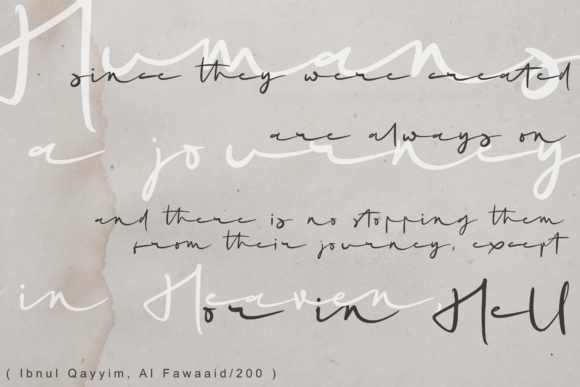 Humans
since they were created
are always on
a journey
and there is no stopping them
from their journey, except
in Heaven,
or in Hell
( Ibnul Qayyim, Al Fawaaid/200 )